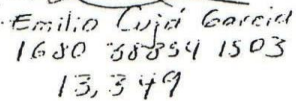 Emilio Cujá Garcia
1680 58354 1503
13,349